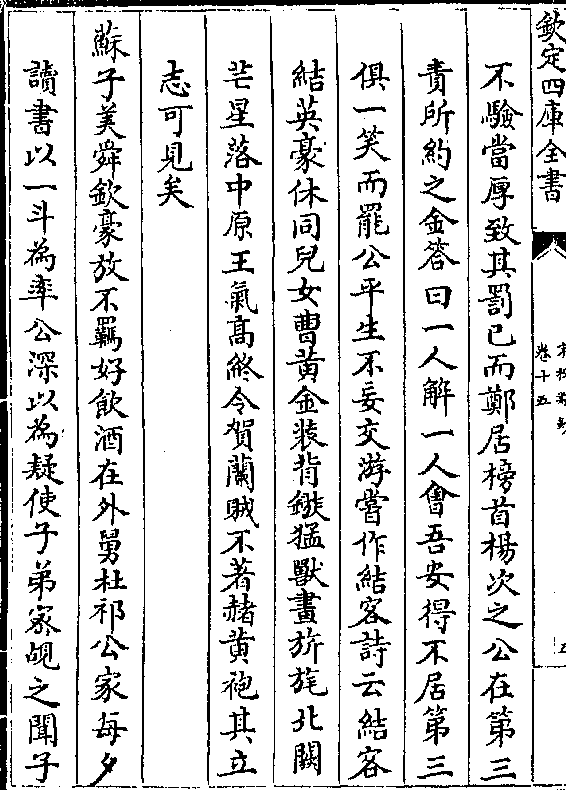 欽定四庫全書
卷十五
不驗當厚致其罰已而鄭居榜首楊次之公在第三
責所約之金答曰一人解一人會吾安得不居第三
俱一笑而罷公平生不妄交游嘗作結客詩云結客
結英豪休同兒女曹黃金裝背鏃猛獸畫旂旄北闕
芒星落中原王氣髙終令賀蘭賊不著赭黃袍其立
志可見矣
蘇子美舜欽豪放不羈好飲酒在外舅杜祁公家每夕
讀書以一斗為率公深以為疑使子弟宻覘之聞子